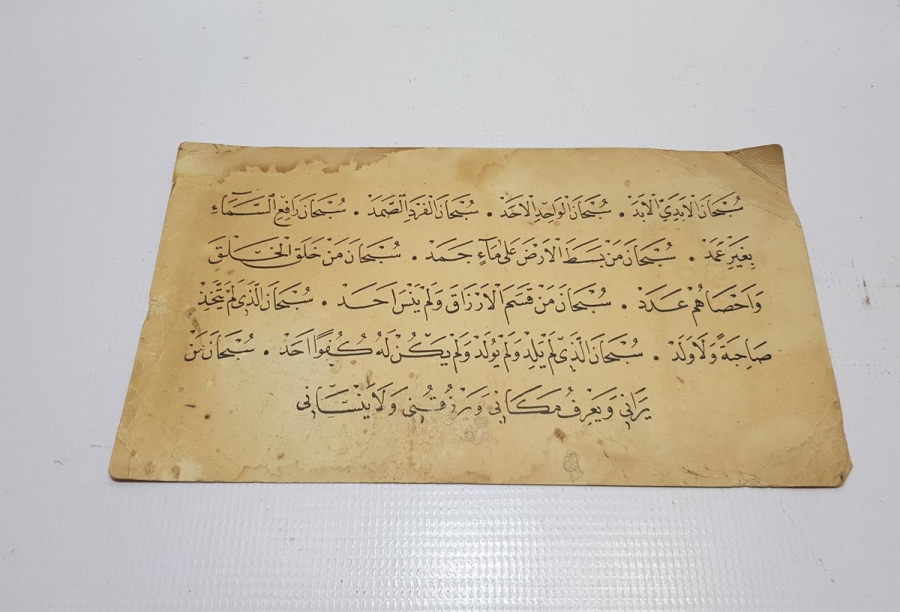 سُبْحَانَ الْاَبَدِيِّ الْاَبَدْ . سُبْحَانَ الْوَاحِدِ الْاَحَدْ . سُبْحَانَ الْفَرْدِ الصَّمَدْ . سُبْحَانَ رَافِعِ السَّمَآءِ
بِغَيْرِ عَمَدْ . سُبْحَانَ مَنْ بَسَطَ الْاَرْضَ عَلٰى مَآءٍ جَمَدْ . سُبْحَانَ مَنْ خَلَقَ الْخَلْقَ
وَاَحْصَاهُمْ عَدَدْ . سُبْحَانَ مَنْ قَسَمَ الْاَرْزَاقَ وَلَمْ يَنْسَ اَحَدْ . سُبْحَانَ الَّذِي لَمْ يَتَّخِذْ
صَاحِبَةً وَلَا وَلَدْ . سُبْحَانَ الَّذِي لَمْ يَلِدْ وَلَمْ يُولَدْ وَلَمْ يَكُنْ لَهُ كُفُوًا اَحَدْ . سُبْحَانَ مَنْ
يَرَانِي وَيَعْرِفُ مَكَانِي وَيَرْزُقُنِي وَلَا يَنْسَانِي